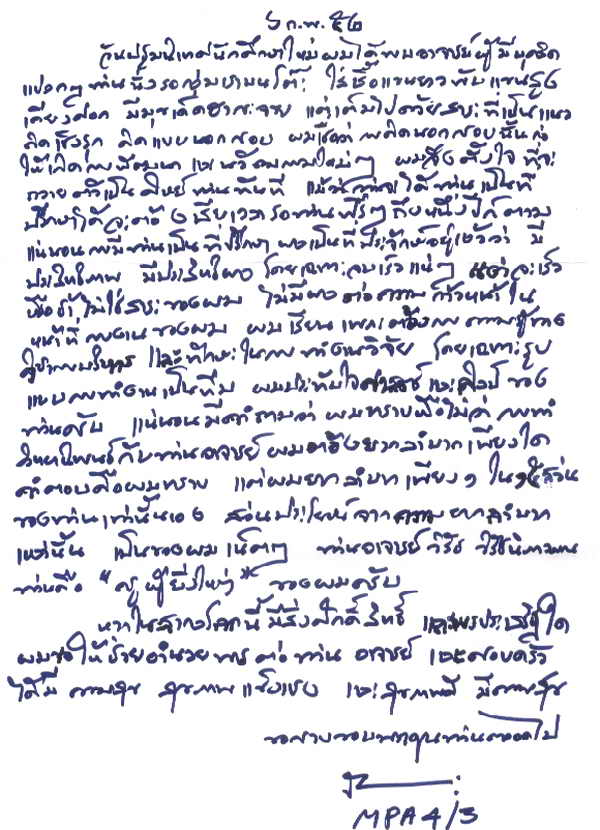 ๖ ก.พ. ๕๒
วันปฐมนิเทศนักศึกษาใหม่ผมได้พบอาจารย์ผู้มีบุคลิก
แปลกๆ ท่านนั่งรอ บนโต๊ะ ใส่เสื้อแขนยาวพับแขนสูง
เคียงศอก มีมุขเด็ดฮาระจาย แต่เต็มไปด้วยสาระที่เป็นแนว
คิดเชิงรุก คิดแบบนอกกรอบ ผมเชื่อว่าการคิดนอกกรอบนั้นก่อ
ให้เกิดการพัฒนา และนวัตกรรมใหม่ๆ ผมจึงตั้งใจที่จะ
ถวายตัวเป็นศิษย์ท่านทันที แม้ว่า ได้ท่านเป็นที่
ปรึกษาได้จะต้องเสียเวลารอท่านฟรีๆ ถึงหนึ่งปีก็ตาม
แน่นอนการมีท่านเป็นที่ปรึกษา เป็นที่ประจักษ์อยู่แล้วว่า มี
ประสิทธิภาพ มีประสิทธิผล โดยเฉพาะจบเร็วแน่ๆ แต่จะเร็ว
หรือช้า ไม่ใช่สาระของผม ไม่มีผลต่อความก้าวหน้าใน
หน้าที่การงานของผม ผมเรียนเพราะต้องการความรู้ทาง
บริหาร และทักษะในการทำงานวิจัย โดยเฉพาะรูป
แบบการทำงานเป็นทีม ผมประทับใจศาสตร์และศิลป์ของ
ท่านครับ แน่นอนมีคำถามว่า ผมทราบหรือไม่ว่าการทำ
วิทยานิพนธ์กับท่านอาจารย์ผมต้องยากลำบากเพียงใด
คำตอบคือผมทราบ แต่ผมยากลำบากเพียง ๑ ใน ส่วน
ของท่านเท่านั้นเอง ส่วนประโยชน์จากความยากลำบาก
เหล่านั้น เป็นของผมเน้นๆ ท่านอาจารย์
ท่านคือ "ครูผู้ยิ่งใหญ่" ของผมครับ
หากในสากลโลกนี้มีสิ่งศักดิ์สิทธิ์ ใด
ผมขอให้ช่วยอำนวยพรต่อท่านอาจารย์ และครอบครัว
ได้มี ความสุข สุขภาพแข็งแรง และสุขภาพดี มีความสุข
ขอกราบขอบพระคุณท่านตลอดไป
MPA 4/3